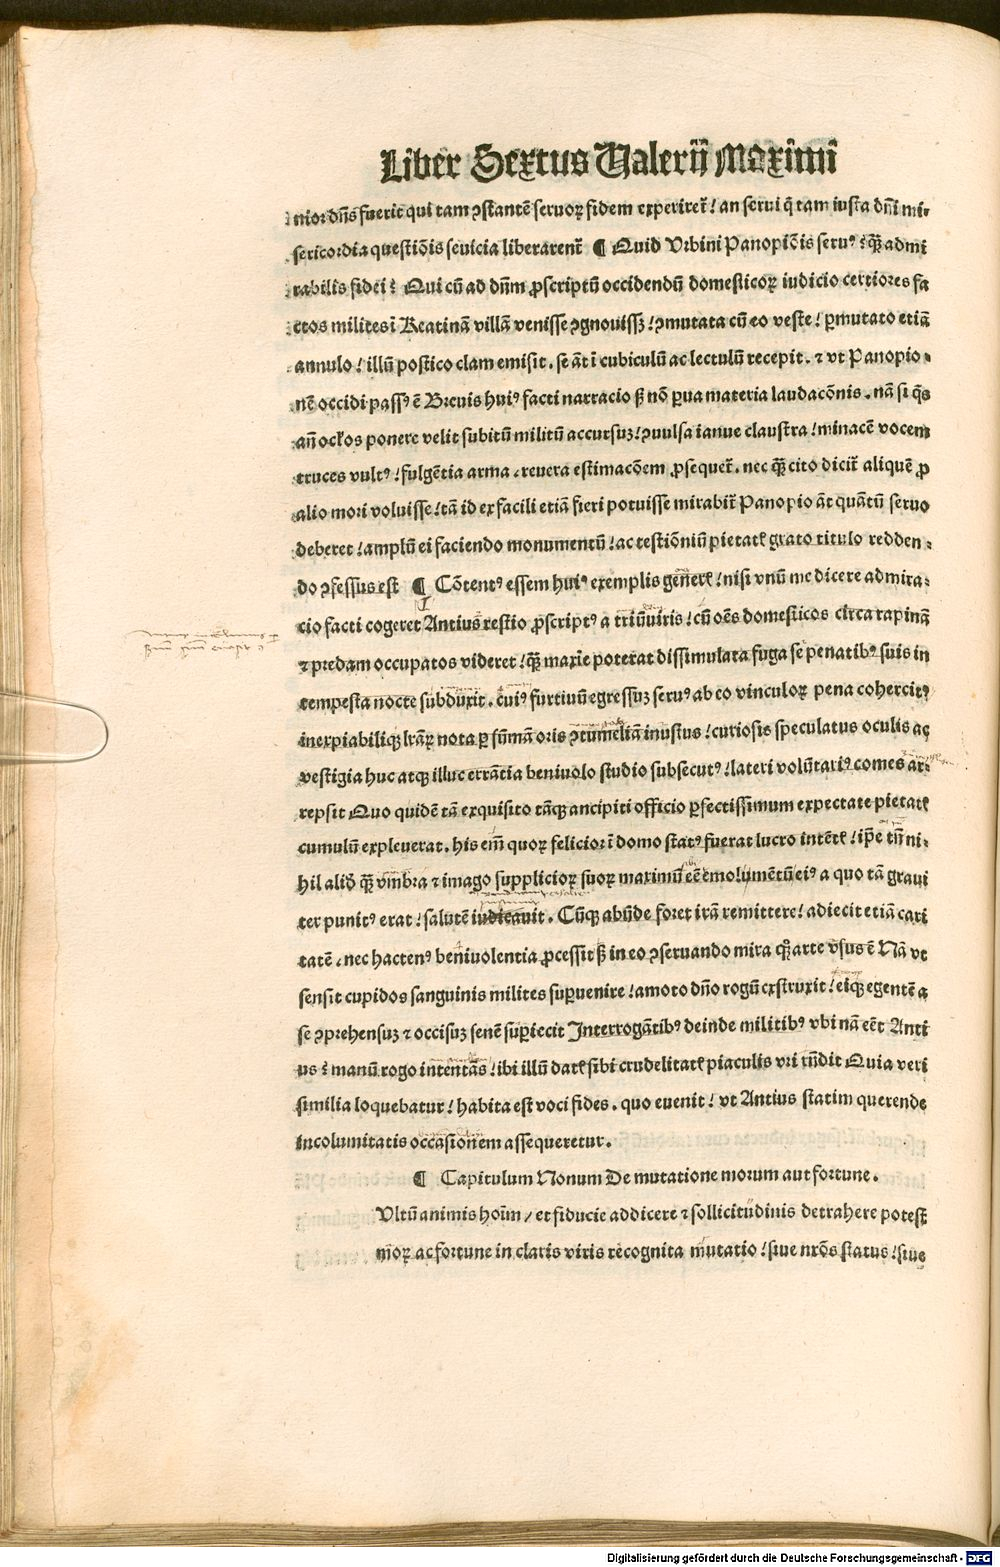 Liber Sextus Valerij Maximi
nior dñs fuerit qui tam ꝯstantē seruoꝝ fidem experiret᷑ / an serui q̄ tam iusta dñi mi-
sericordia questiōis seuicia liberarent᷑ ¶ Quid Vrbini Panopiōis seruꝰ : q̄ꝫ admi
rabilis fidei : Qui cū ad dñm ꝓscriptū occidendū domesticoꝝ iudicio certiores fa
ctos milites ī Reatinā villā venisse ꝯgnouissꝫ / ꝯmutata cū eo veste / ꝑmutato etiā
annulo / illū postico clam emisit . se āt ī cubiculū ac lectulū recepit . ⁊ vt Panopio-
nē occidi passꝰ ē Breuis huiꝰ facti narracio sꝫ nō ꝑua materia laudacōnis . nā si q̄s
añ oclos ponere velit subitū militū accursuꝫ / ꝯuulsa ianue claustra / minacē vocem
truces vultꝰ / fulgētia arma . reuera estimacōem ꝓsequet᷑ . nec q̄ꝫ cito dicit᷑ aliquē ꝓ
alio mori voluisse / tā id ex facili etiā fieri potuisse mirabit᷑ Panopio āt quātū seruo
deberet / amplū ei faciendo monumentū / ac testiōniū pietatꝭ grato titulo redden-
do ꝯfessus est ¶ Cōtentꝰ essem huiꝰ exemplis generꝭ / nisi vnū me dicere admira-
cio facti cogeret Antius restio ꝓscriptꝰ a triūuiris / cū oēs domesticos circa rapinā
⁊ predam occupatos videret / q̄ꝫ maxīe poterat dissimulata fuga se penatibꝰ suis in
tempesta nocte subduxit . cuiꝰ furtiuū egressuꝫ seruꝰ ab eo vinculoꝝ pena cohercitꝰ
inexpiabiliqꝫ lr̄aꝝ nota ꝑ sūmā oris ꝯtumeliā inustus / curiosis speculatus oculis ac
vestigia huc atqꝫ illuc errātia beniuolo studio subsecutꝰ / lateri volūtariꝰ comes ar-
repsit Quo quidē tā exquisito tāqꝫ ancipiti officio ꝑfectissimum expectate pietatꝭ
cumulū expleuerat . his em̄ quoꝝ felicior ī domo statꝰ fuerat lucro intētꝭ / ip̄e tn̄ ni-
hil aliđ q̄ꝫ vmbra ⁊ imago supplicioꝝ suoꝝ maximū eē emolumētū eiꝰ a quo tā graui
ter punitꝰ erat / salutē iudicauit . Cūqꝫ abūde foret irā remittere / adiecit etiā cari
tatē . nec hactenꝰ beniuolentia ꝓcessit sꝫ in eo ꝯseruando mira qꝫ arte vsus ē Nā vt
sensit cupidos sanguinis milites suꝑuenire / amoto dño rogū cxstruxit / eiqꝫ egentē a
se ꝯprehensuꝫ ⁊ occisuꝫ senē suꝑiecit Interrogātibꝰ deinde militibꝰ vbi nā eēt Anti
us : manū rogo intentās / ibi illū datꝭ sibi crudelitatꝭ piaculis vri rn̄dit Quia veri
similia loquebatur / habita est voci fides . quo euenit / vt Antius statim querende
incolumitatis occasionem assequeretur .
¶ Capitulum Nonum De mutatione morum aut fortune .
Vltū animis hoīm / et fiducie addicere ⁊ sollicitudinis detrahere potest
moꝝ ac fortune in claris viris recognita mutatio / siue nr̄os status / siue
Digitalisierung gefördert durch die Deutsche Forschungsgemeinschaft - DFG